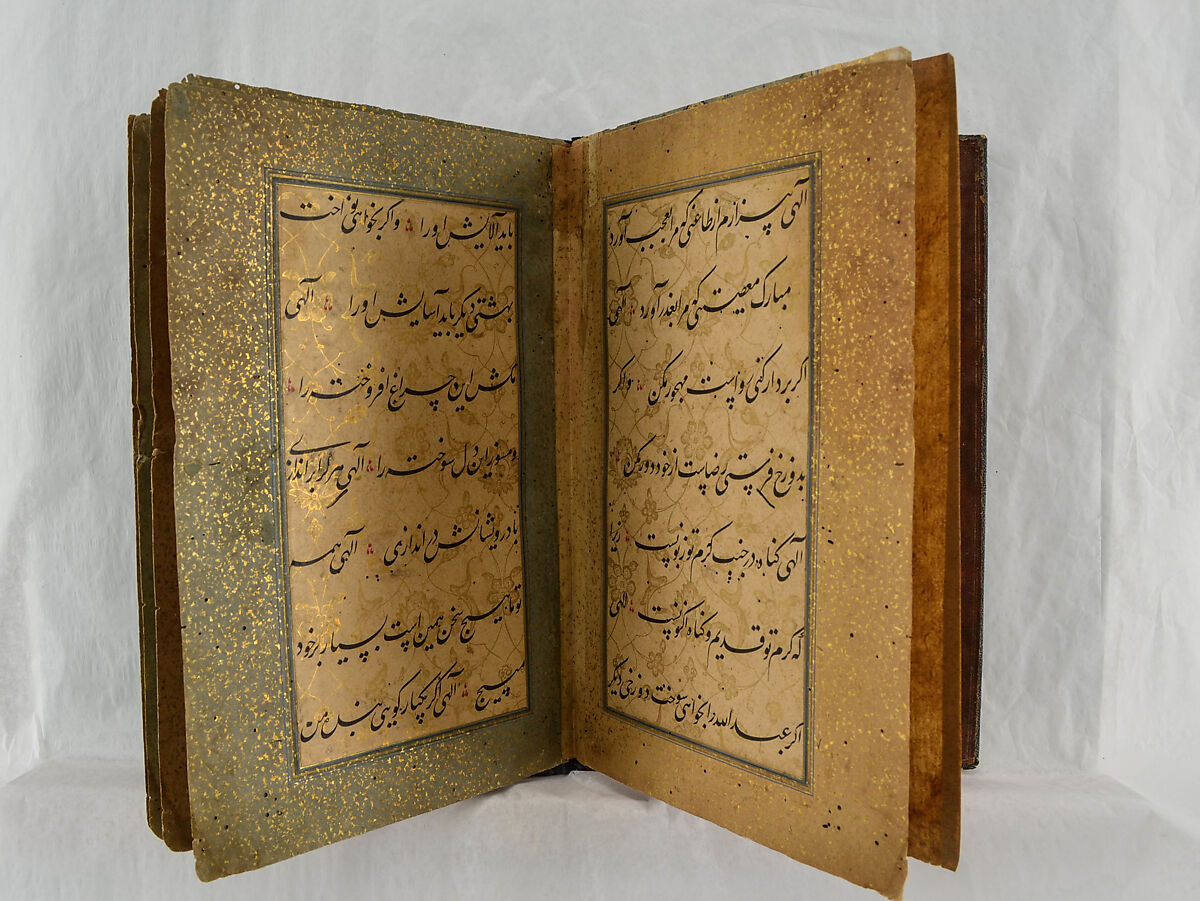 الهی بیزارم از طاعتی که مرا بعجب آورد
مبارک معصیتی که مرا بعذر آورد الهی
اکر بردار کنی رواست مهجور مکن واکر
بدوزخ فرستی رضاست از خود دور مکن
الهی کناه در جنب کرم تو زبونست زیرا
که کرم تو قدیم و کناه اکنونست الهی
اکر عبدالله را بخواهی سوخت دوزخی دیکر
باید آلایش اورا واکر بخواهی نواخت
بهشتی دیکر باید آسایش اورا الهی
مکش این چراغ افروخته را
ومسوزان دل سوخته را الهی هرکرا براندازی
با درویشانش دراندازی الهی همه
تو ما هیچ سخن همین است بسیار برخود
مپیچ الهی اکر یکبار کویی بنده من